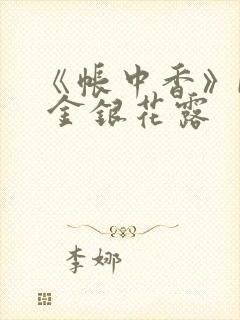 《帐中香》
金银花露
李娜